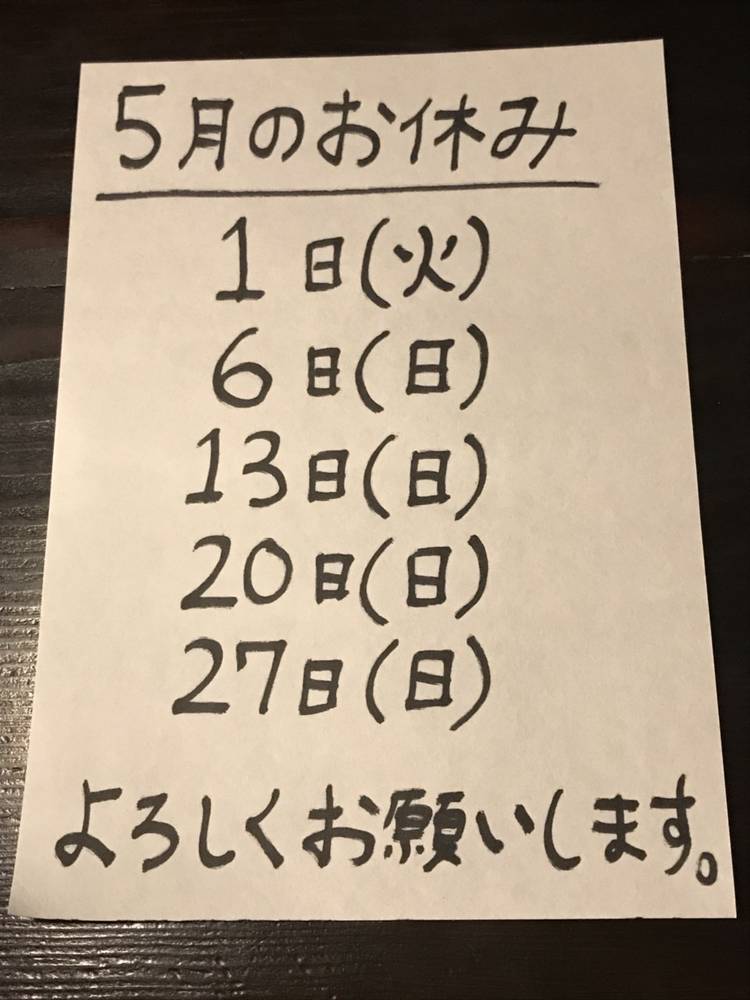 5月のお休み
1日(火)
6日(日)
13日(日)
20日(日)
27日(日)
よろしくお願いします。